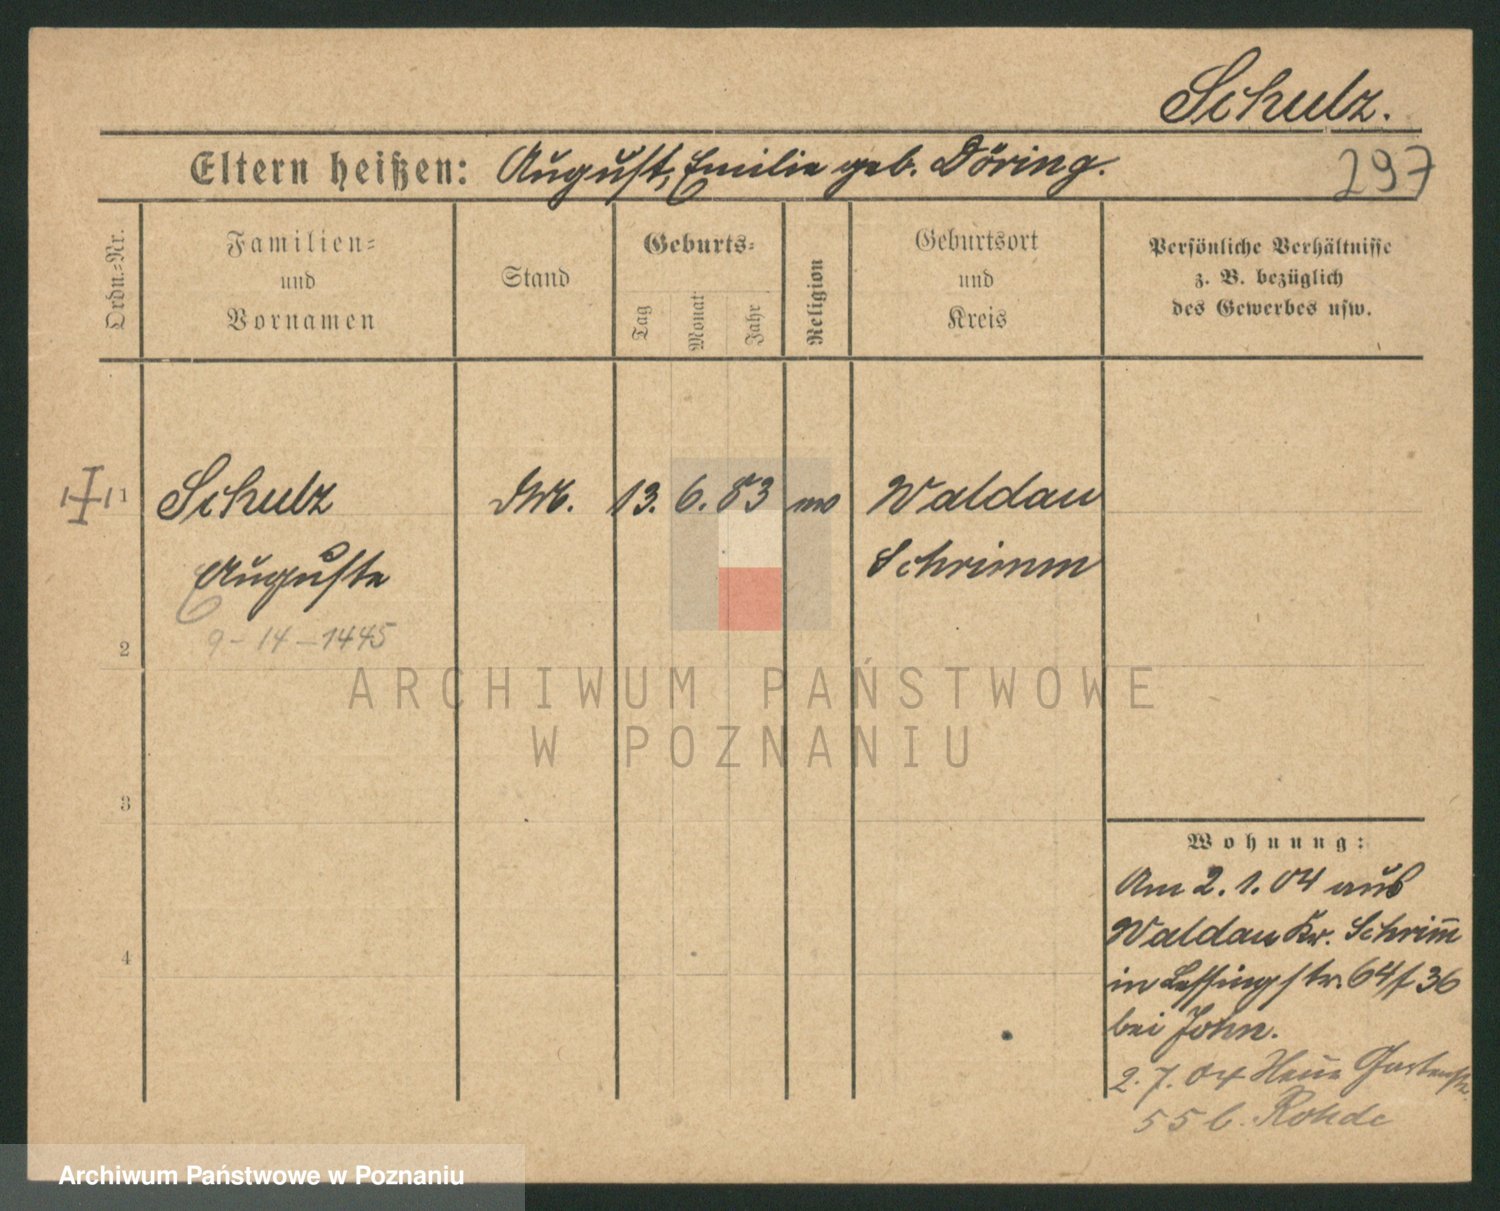 Schulz.
Eltern heißen: August, Emilie geb. Döring.
297
Ordn.=Nr.
Familien=
und
Vornamen
Stand
Geburts=
Tag
Monat
Jahr
Religion
Geburtsort
und
Kreis
Persönliche Verhältnisse
z. B. bezüglich
des Gewerbes usw.
1
Schulz 13. 6. 83 Waldau
Auguste Schrimm
9-14-1445
2
ARCHIWUM PAŃSTWOWE
W POZNANIU
3
4
Wohnung:
Am 2.1.04 aus
Waldau Kr. Schrim̅
in Lessingstr. 64/36
bei John.
2.7.04 Gartenstr.
55 b. Rohde
Archiwum Państwowe w Poznaniu